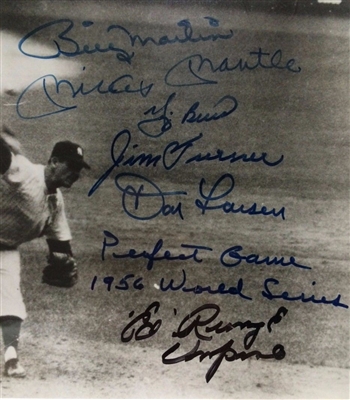 Billy Martin
Mickey Mantle
Jim Turner
Don Larsen
Perfect Game
1956 World Series
"Ed" Runge
Umpire